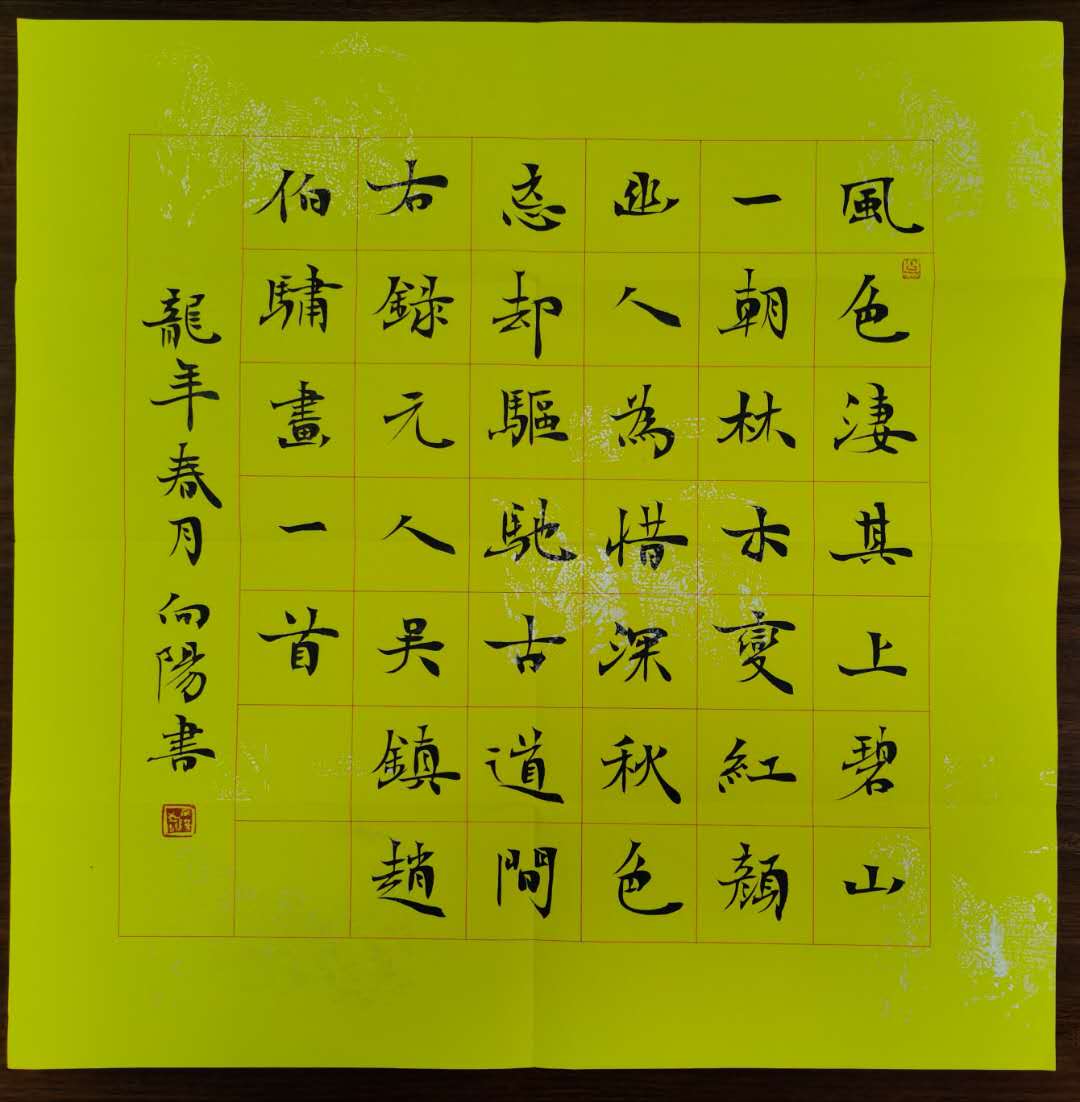 風色淒其上碧山
一朝林木變紅顏
幽人為惜深秋色
忘却驅馳古道間
右録元人吳鎮趙
伯驌畫一首
龍年春月向陽書